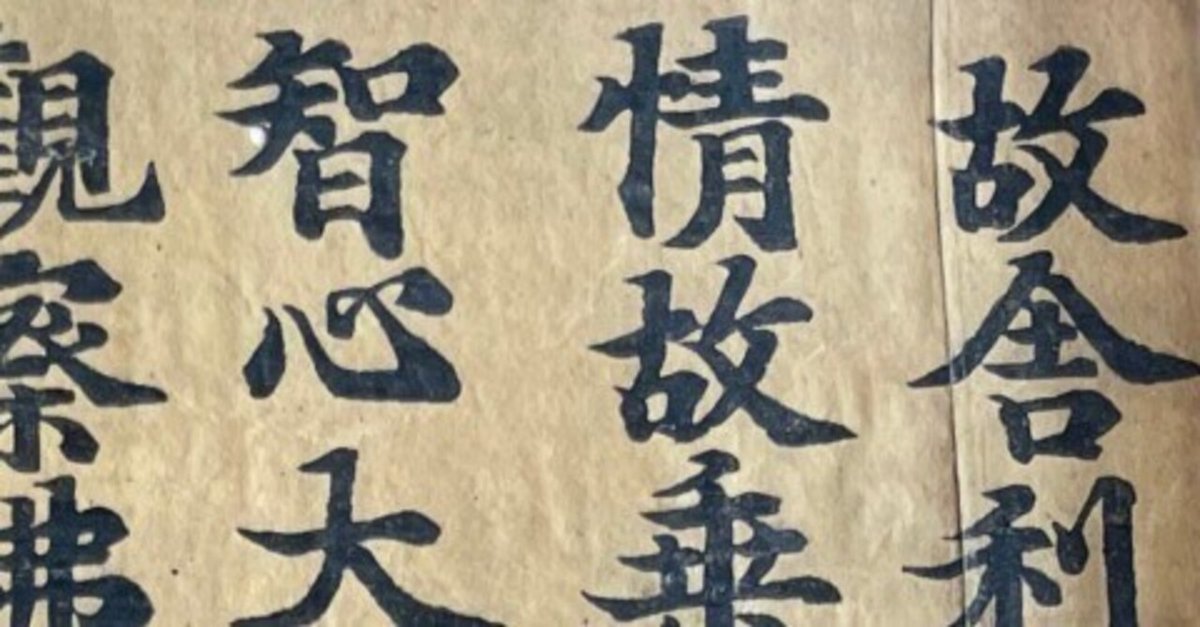 故舍利
情故乗
智心大
觀察佛